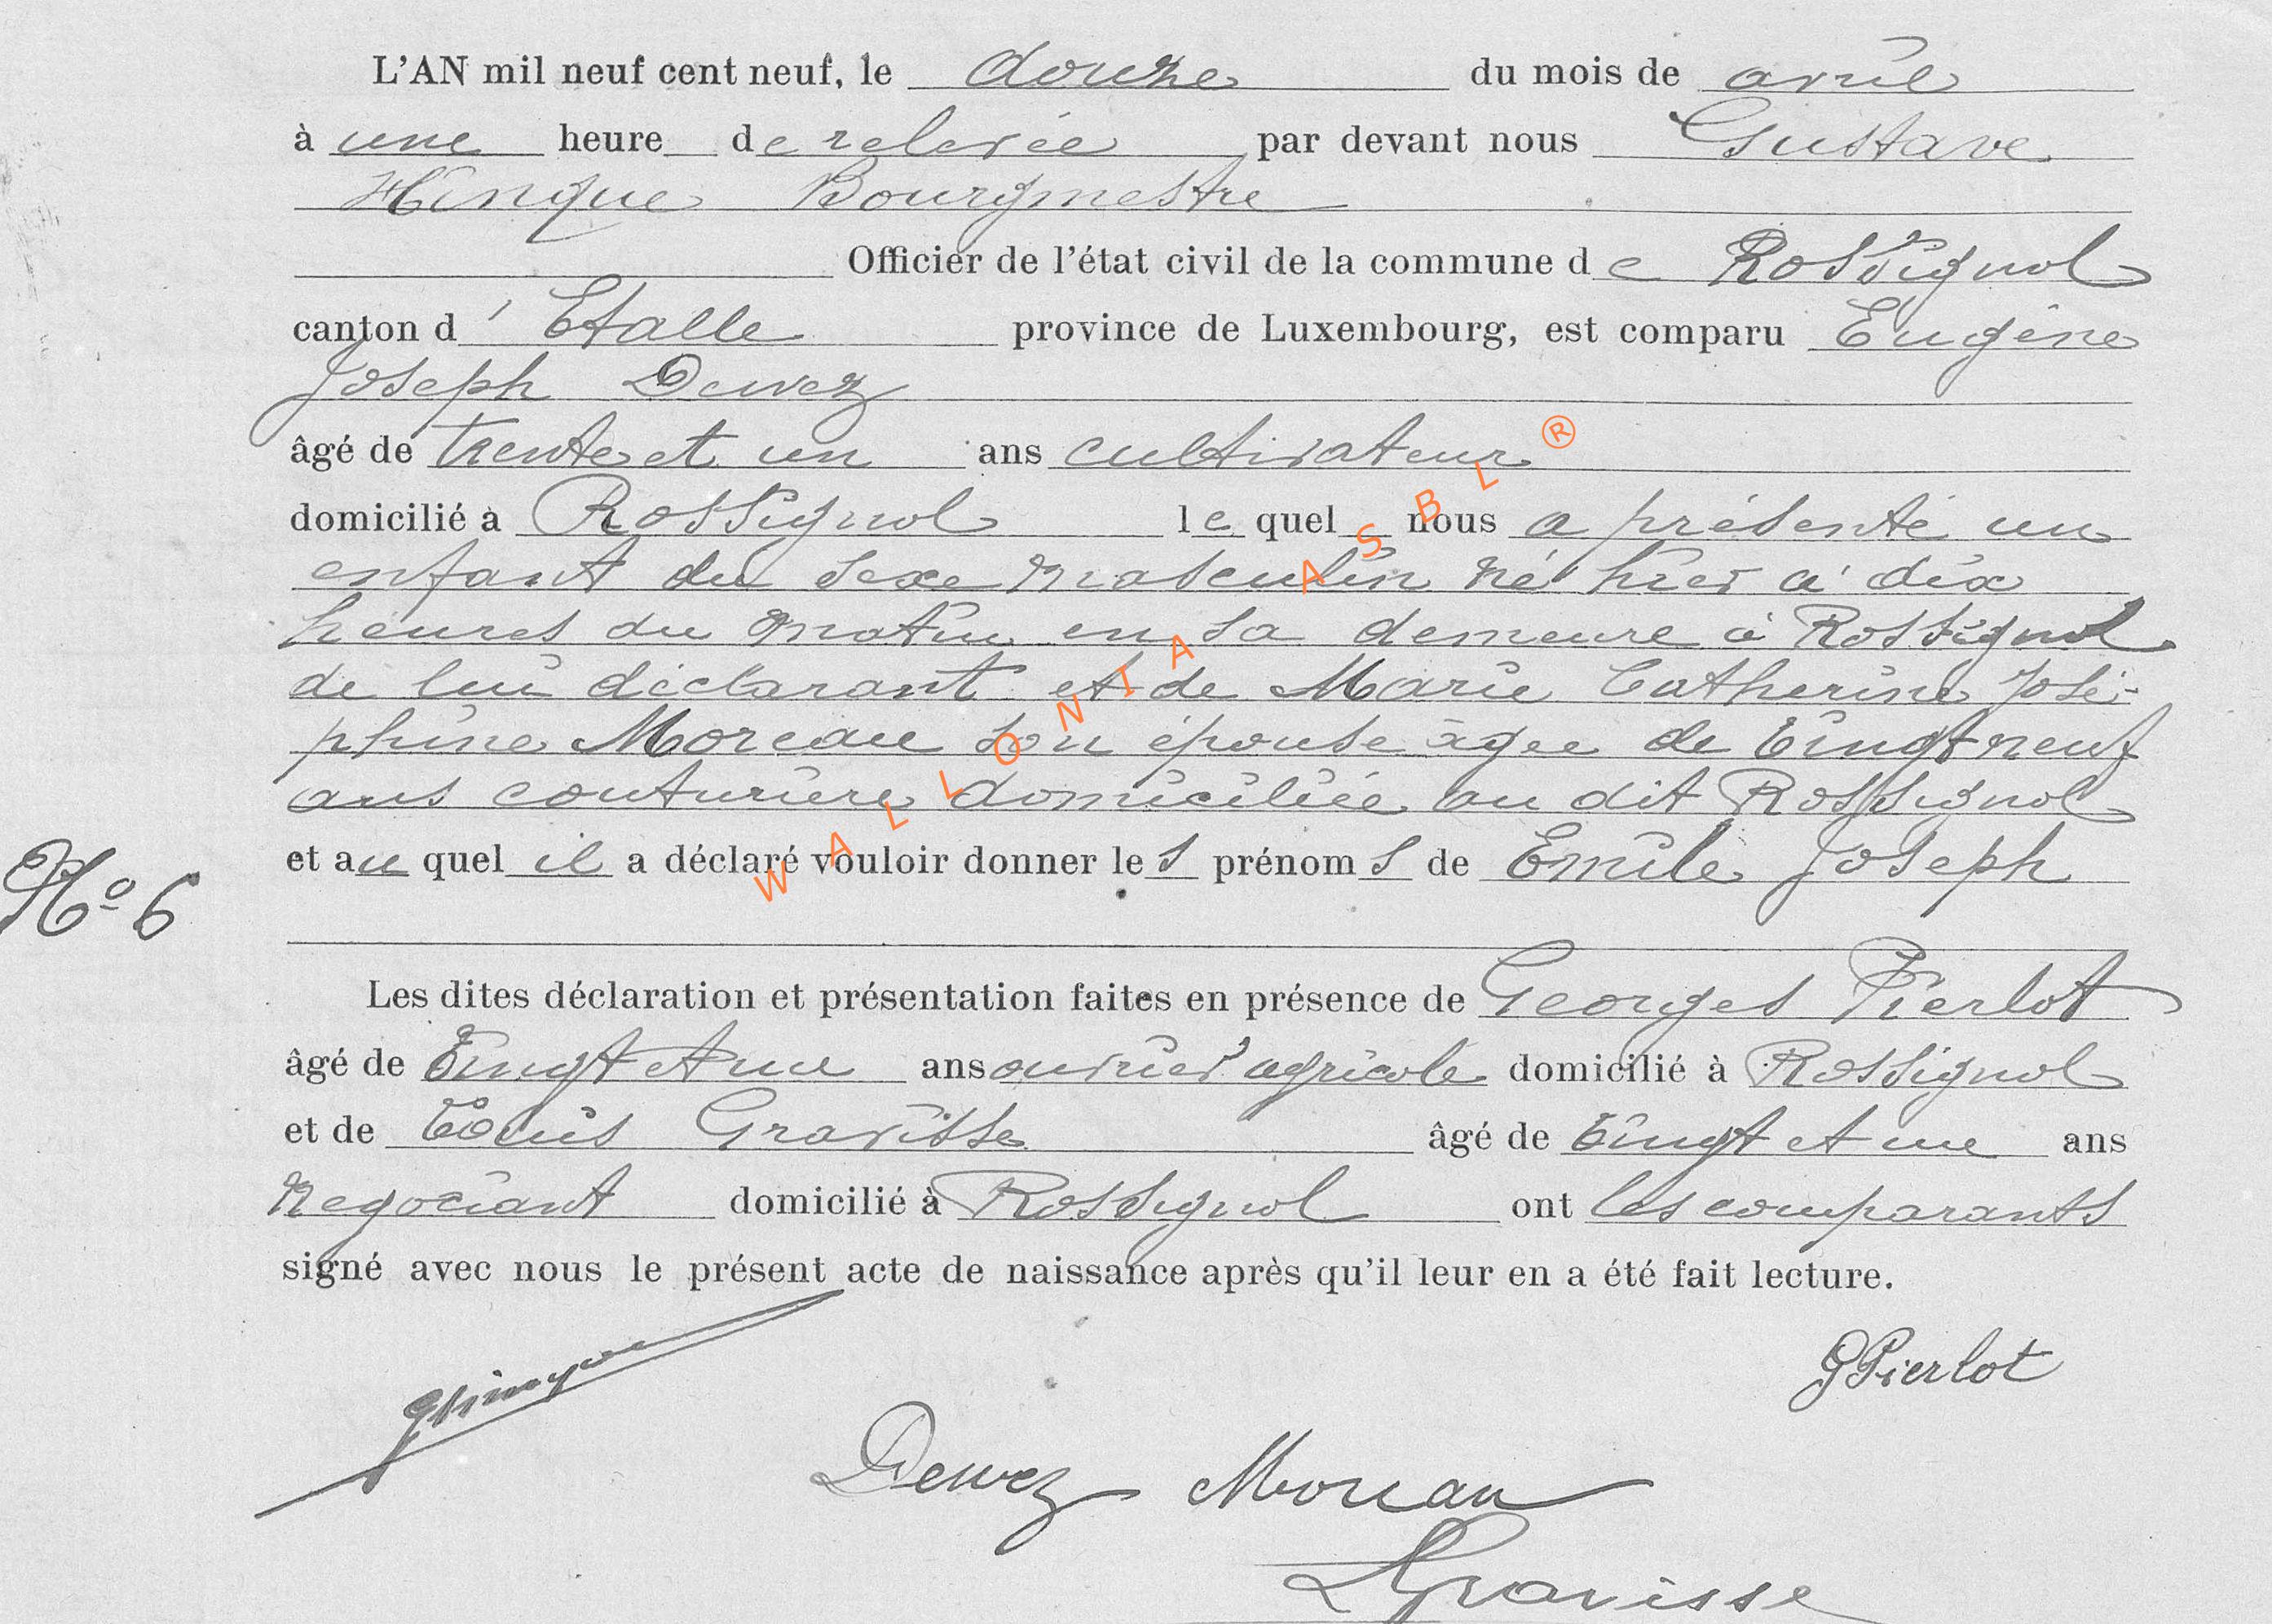 L'AN mil neuf cent neuf, le douze du mois de avril
à une heure de relevée par devant nous Gustave
Hinque Bourgmestre
Officier de l'état civil de la commune de Rossignol
canton d'Etalle province de Luxembourg, est comparu Eugène
Joseph Dewez
âgé de trente et un ans cultivateur
domicilié à Rossignol lequel nous a présenté un
enfant du sexe masculin né hier à dix
heures du matin en sa demeure à Rossignol
de lui déclarant et de Marie Catherine José-
phine Moreau son épouse âgée de vingt neuf
ans couturière domiciliée au dit Rossignol
et au quel il a déclaré vouloir donner les prénoms de Emile Joseph
N° 6
Les dites déclaration et présentation faites en présence de Georges Pierlot
âgé de vingt et un ans ouvrier agricole domicilié à Rossignol
et de Louis Gravisse âgé de vingt et un ans
négociant domicilié à Rossignol ont les comparants
signé avec nous le présent acte de naissance après qu'il leur en a été fait lecture.
GPierlot
GHinque
Dewez Moreau
LGravisse
WALLONIA ASBL ®